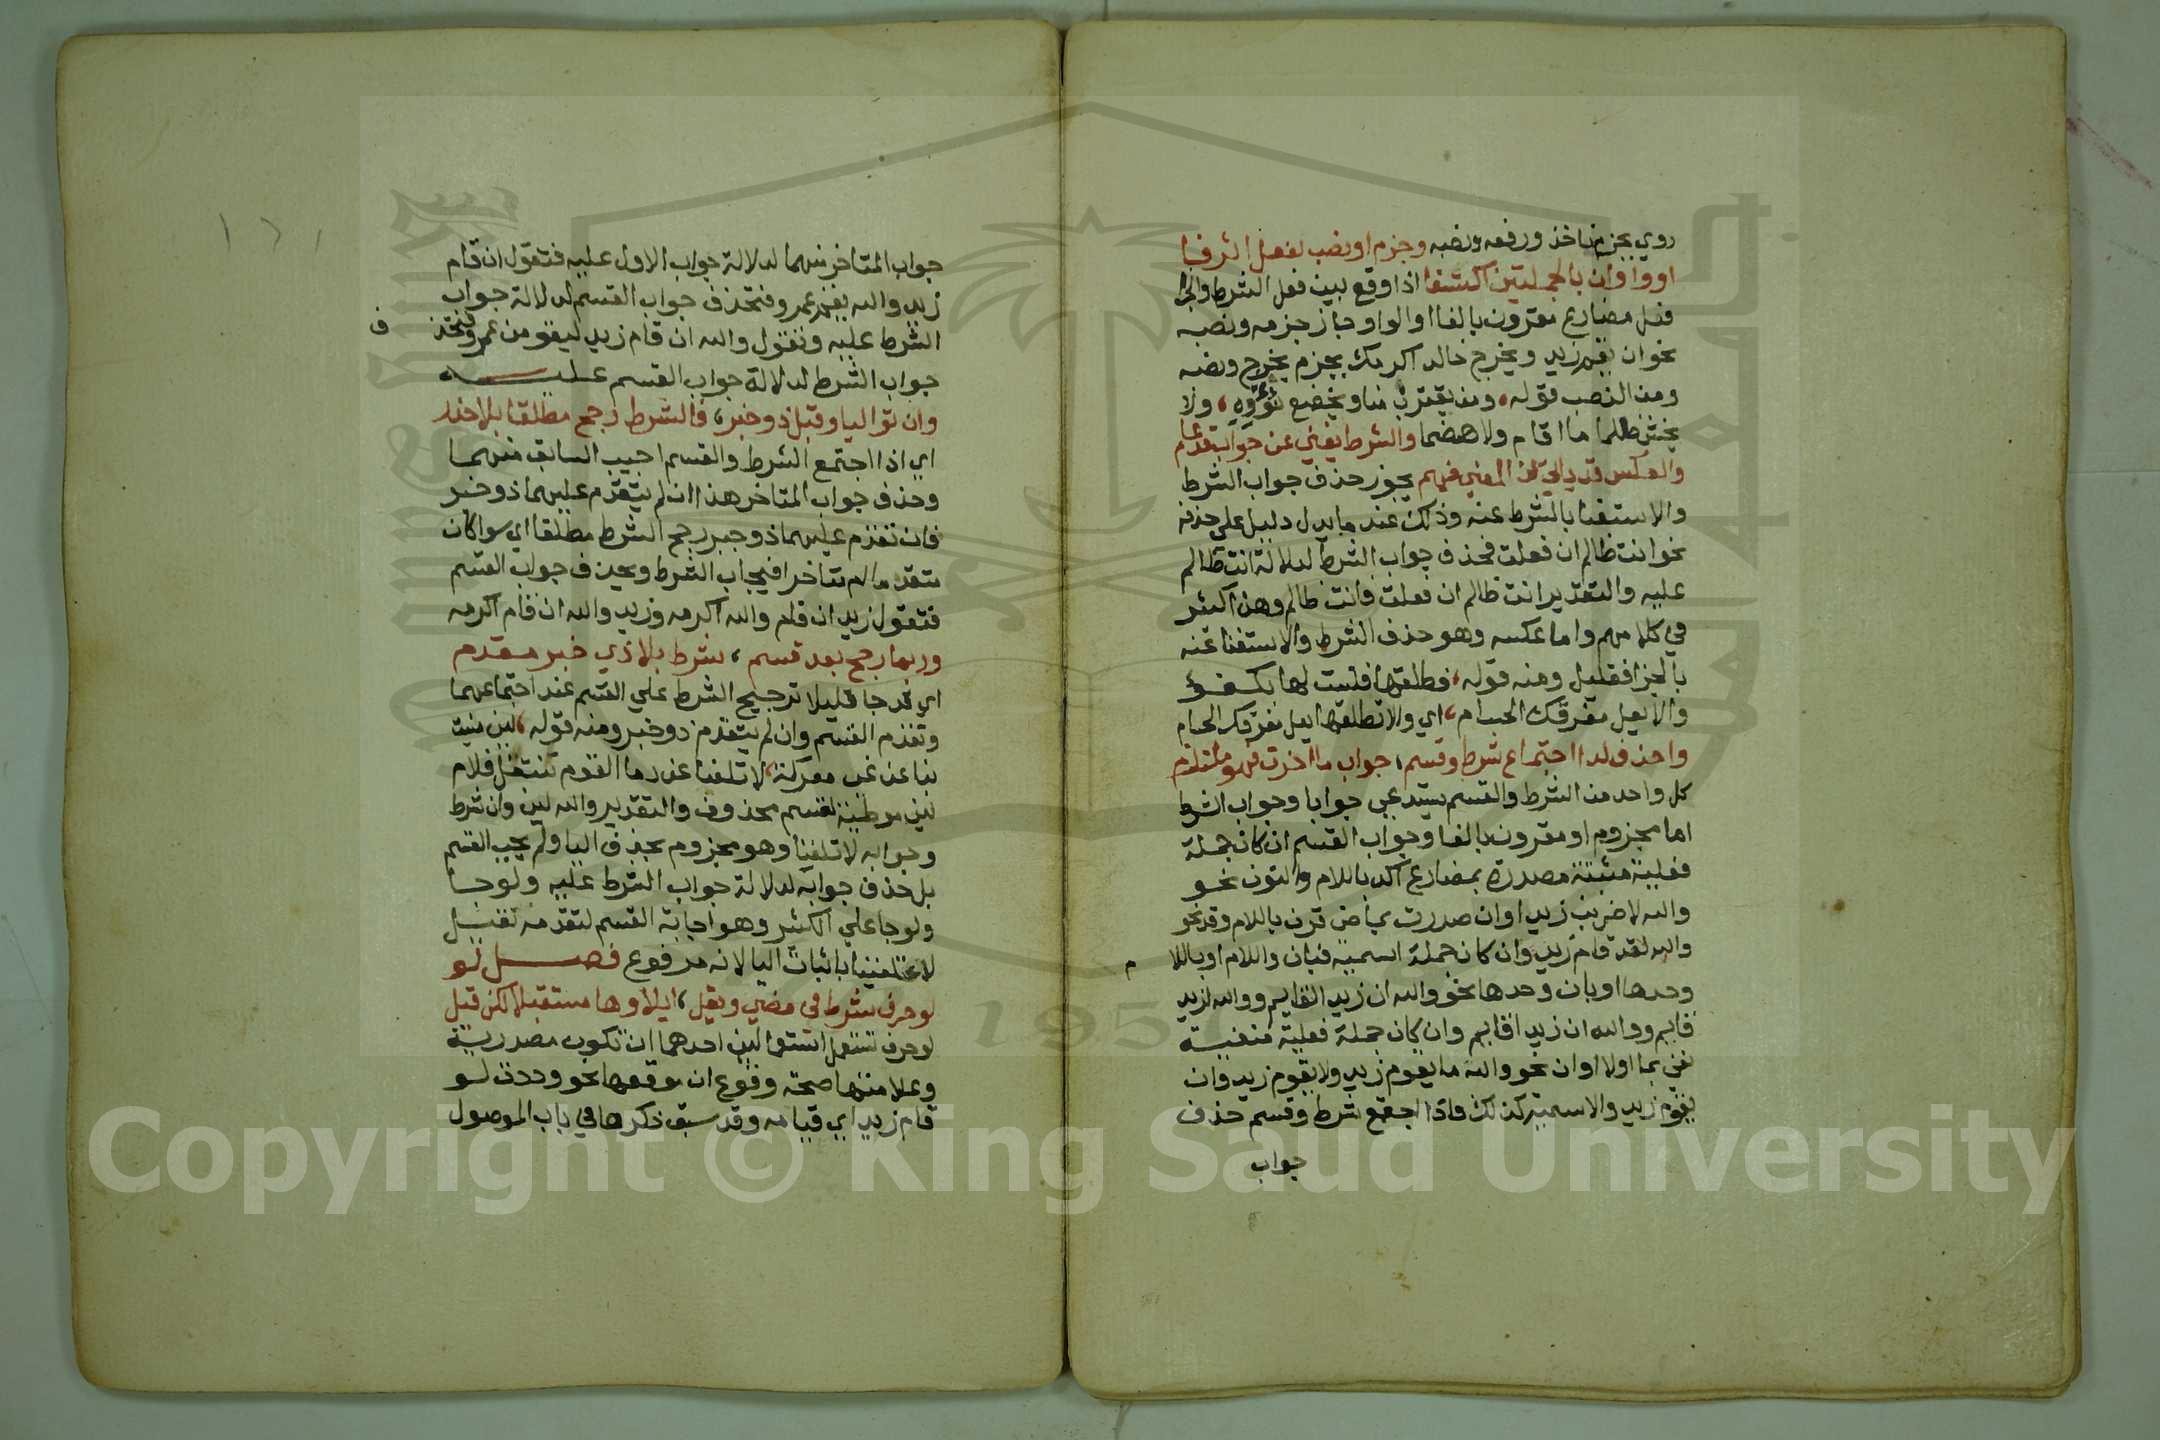 روي بجزم ناخذ ورفعه ونصبه وجزم او نصب لفعل اثر فا
او واو ان بالجملتين اكتنفا اذا وقع بين فعل الشرط والجزا
فعل مضارع مقرون بالفا او الواو جاز جزمه ونصبه
نحو ان يقم زيد ويخرج خالد اكرمك بجزم يخرج ونصبه
ومن النصب قوله ومن يقترب منا ويخضع نؤوه ولا
يخش ظلما ما اقام ولا هضما والشرط يغني عن جواب قد علم
والعكس قد ياتي ان المعني فهم يجوز حذف جواب الشرط
والاستغنا بالشرط عنه وذلك عند ما يدل دليل علي حذفه
نحو انت ظالم ان فعلت فحذف جواب الشرط لدلالة انت ظالم
عليه والتقدير انت ظالم ان فعلت فانت ظالم وهذا كثير
في كلامهم واما عكسه وهو حذف الشرط والاستغنا عنه
بالجزا فقليل ومنه قوله فطلقها فلست لها بكفؤ
والا يعل مفرقك الحسام اي والا تطلقها يعل مفرقك الحسام
واحذف لدا اجتماع شرط وقسم جواب ما اخرت فهو ملتزم
كل واحد من الشرط والقسم يستدعي جوابا وجواب الشرط
اما مجزوم او مقرون بالفا وجواب القسم ان كان جملة
فعلية مثبتة مصدرة بمضارع اكد باللام والنون نحو
والله لاضربن زيدا وان صدرت بماض قرن باللام وقد نحو
والله لقد قام زيد وان كان جملة اسمية فبان واللام او باللا م
وحدها او بان وحدها نحو والله ان زيدا لقايم ووالله لزيد
قايم ووالله ان زيدا قايم وان كان جملة فعلية منفية
نفي بما او لا او ان نحو والله ما يقوم زيد ولا يقوم زيد وان
يقوم زيد والاسمية كذلك فاذا اجتمع شرط وقسم حذف
جواب
١٢١
جواب المتاخر منهما لدلالة جواب الاول عليه فتقول ان قام
زيد والله يقم عمرو فتحذف جواب القسم لدلالة جواب
الشرط عليه وتقول والله ان قام زيد ليقومن عمرو فتحذ ف
جواب الشرط لدلالة جواب القسم عليه
وان تواليا وقبل ذو خبر فالشرط رجح مطلقا بلا حذر
اي اذا اجتمع الشرط والقسم اجيب السابق منهما
وحذف جواب المتاخر هذا ان لم يتقدم عليهما ذو خبر
فان تقدم عليهما ذو خبر رجح الشرط مطلقا اي سوا كان
متقدما ام متاخرا فيجاب الشرط ويحذف جواب القسم
فتقول زيد ان قام والله اكرمه وزيد والله ان قام اكرمه
وربما رجح بعد قسم شرط بلا ذي خبر مقدم
اي قد جا قليلا ترجيح الشرط علي القسم عند اجتماعهما
وتقدم القسم وان لم يتقدم ذو خبر ومنه قوله لين منيت
بنا عن غب معركة لا تلفنا عن دما القوم ننتفل فلام
لين موطئة لقسم محذوف والتقدير والله لين وان شرط
وجوابه لا تلفنا وهو مجزوم بحذف اليا ولم يجب القسم
بل حذف جوابه لدلالة جواب الشرط عليه ولو جا
ولو جا علي الكثير وهو اجابة القسم لتقدمه لقيل
لا تلفينا باثبات اليا لانه مرفوع فصل لو
لو حرف شرط في مضي ويقل ايلاوها مستقبلا لكن قبل
لو حرف تستعمل استعمالين احدهما ان تكون مصدرية
وعلامتها صحة وقوع ان موقعها نحو وددت لو
قام زيد اي قيامه وقد سبق ذكرها في باب الموصول
1957
Copyright © King Saud University